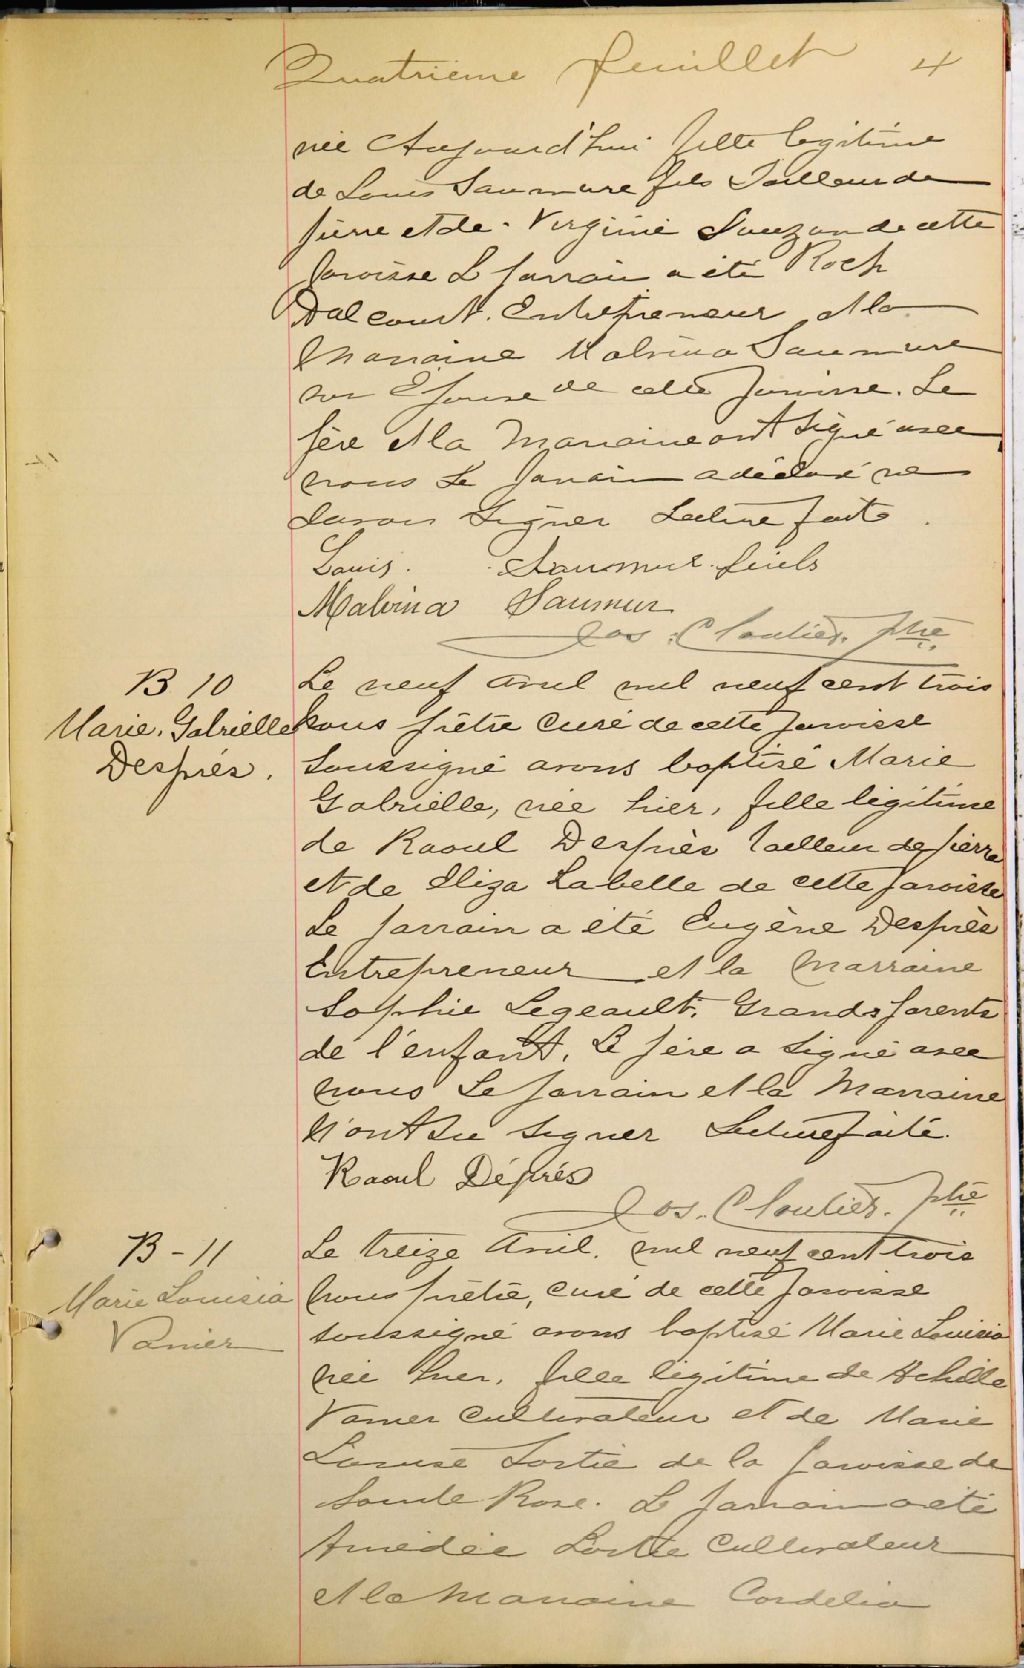 Quatrième feuillet 4
née Aujourd'hui fille légitime
de Louis Saumure fils Tailleur de
pierre et de Virginie Lauzon de cette
paroisse Le parrain a été Roch
Dalcourt. Entrepreneur et la
Marraine Malvina Saumure
son Epouse de cette paroisse. Le
père et la Marraine ont Signé avec
nous Le parrain a déclaré ne
savoir Signer Lecture faite.
Louis. Saumure fiels
Malvina Saumur
Jos. Cloutier. ptre
B 10
Marie. Gabrielle
Després.
Le neuf avril mil neuf cent trois
Nous prêtre curé de cette paroisse
Soussigné avons baptisé Marie
Gabrielle, née hier, fille légitime
de Raoul Després tailleur de pierre
et de Eliza Labelle de cette paroisse
Le parrain a été Eugène Desprès
Entrepreneur et la Marraine
Sophie Legeault. Grands parents
de l'enfant. Le père a Signé avec
nous Le parrain et la Marraine
N'ont su signer Lecture faite.
Raoul Déprés
Jos. Cloutier. ptre
B - 11
Marie Louisia
Vanier
Le treize Avril. mil neuf cent trois
Nous prêtre, curé de cette paroisse
soussigné avons baptisé Marie Louisia
née hier, fille légitime de Achille
Vanier Cultivateur et de Marie
Louise Lortie de la paroisse de
Sainte Rose. Le parrain a été
Amédée Lortie Cultivateur
et la Marraine Cordelia